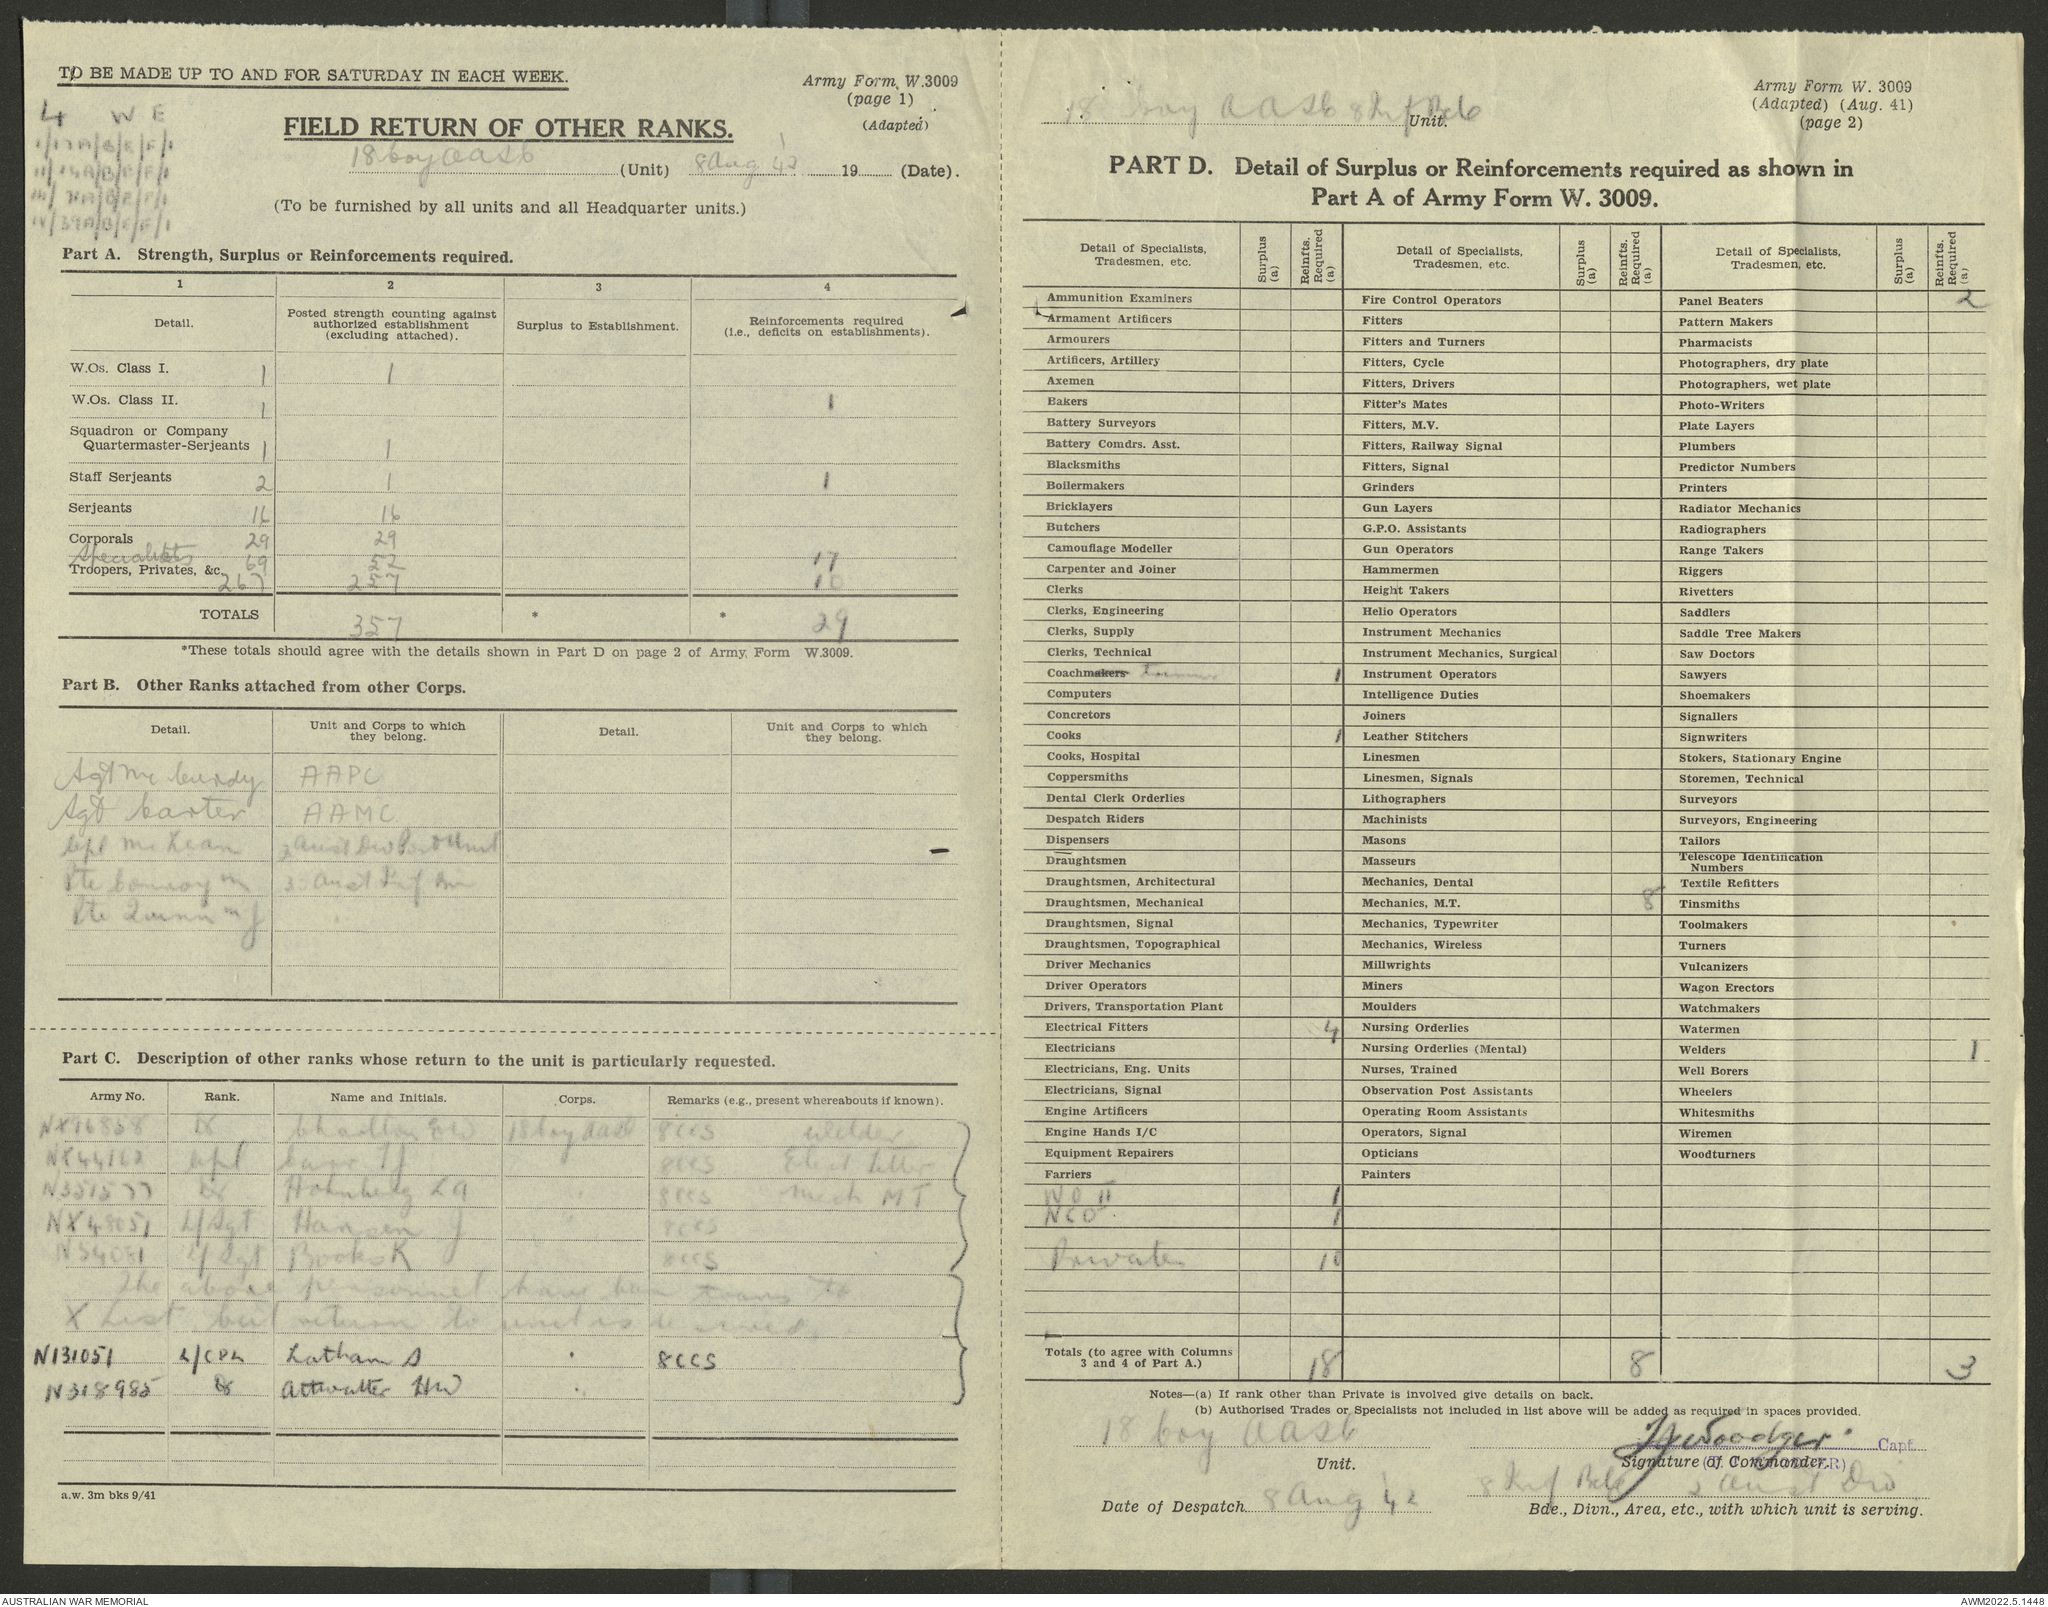 TO BE MADE UP TO AND FOR SATURDAY IN EACH WEEK.
Army Form W.3009
(page 1)
(Adapted)
4 W E
FIELD RETURN OF OTHER RANKS.
18 Coy AASC (Unit) 8 Aug 42 19 (Date).
(To be furnished by all units and all Headquarter units.)
Part A. Strength, Surplus or Reinforcements required.
1 2 3 4
Detail. Posted strength counting against authorized establishment (excluding attached). Surplus to Establishment. Reinforcements required (i.e., deficits on establishments).
W.Os. Class I. 1 1
W.Os. Class II. 1 1
Squadron or Company
Quartermaster-Serjeants 1 1
Staff Serjeants 2 1 1
Serjeants 16 16
Corporals 29 29
Specialists 69 52 17
Troopers, Privates, &c. 267 257 10
TOTALS 357 * * 29
*These totals should agree with the details shown in Part D on page 2 of Army Form W.3009.
Part B. Other Ranks attached from other Corps.
Detail. Unit and Corps to which they belong. Detail. Unit and Corps to which they belong.
Sgt Mc Curdy AAPC
Sgt Carter AAMC
Cpl McLean Aust Div Unit
Pte Conroy M Aust Inf
Pte Quinn M J "
Part C. Description of other ranks whose return to the unit is particularly requested.
Army No. Rank. Name and Initials. Corps. Remarks (e.g., present whereabouts if known).
NX16858 Dr Charlton 18 Coy AASC 8CCS Welder
Cpl Carr T J " 8CCS Elect Fitter
N351577 Dr Holmberg L A " 8CCS Mech MT
NX48051 L/Sgt Hansen J " 8CCS
N54081 L/Sgt Books K 8CCS
The above personnel have been trans to
X List but return to unit is desired.
N131051 L/CPL Latham S " 8CCS
N318985 Dr Attwatter HW "
a.w. 3m bks 9/41
18 Coy AASC 8 Inf Bde Unit.
Army Form W. 3009
(Adapted) (Aug. 41)
(page 2)
PART D. Detail of Surplus or Reinforcements required as shown in
Part A of Army Form W. 3009.
Detail of Specialists, Tradesmen, etc. Surplus (a) Reinfts. Required (a) Detail of Specialists, Tradesmen, etc. Surplus (a) Reinfts. Required (a) Detail of Specialists, Tradesmen, etc. Surplus (a) Reinfts. Required (a)
Ammunition Examiners Fire Control Operators Panel Beaters 2
Armament Artificers Fitters Pattern Makers
Armourers Fitters and Turners Pharmacists
Artificers, Artillery Fitters, Cycle Photographers, dry plate
Axemen Fitters, Drivers Photographers, wet plate
Bakers Fitter's Mates Photo-Writers
Battery Surveyors Fitters, M.V. Plate Layers
Battery Comdrs. Asst. Fitters, Railway Signal Plumbers
Blacksmiths Fitters, Signal Predictor Numbers
Boilermakers Grinders Printers
Bricklayers Gun Layers Radiator Mechanics
Butchers G.P.O. Assistants Radiographers
Camouflage Modeller Gun Operators Range Takers
Carpenter and Joiner Hammermen Riggers
Clerks Height Takers Rivetters
Clerks, Engineering Helio Operators Saddlers
Clerks, Supply Instrument Mechanics Saddle Tree Makers
Clerks, Technical Instrument Mechanics, Surgical Saw Doctors
Coachmakers Trimmers 1 Instrument Operators Sawyers
Computers Intelligence Duties Shoemakers
Concretors Joiners Signallers
Cooks 1 Leather Stitchers Signwriters
Cooks, Hospital Linesmen Stokers, Stationary Engine
Coppersmiths Linesmen, Signals Storemen, Technical
Dental Clerk Orderlies Lithographers Surveyors
Despatch Riders Machinists Surveyors, Engineering
Dispensers Masons Tailors
Draughtsmen Masseurs Telescope Identification Numbers
Draughtsmen, Architectural Mechanics, Dental Textile Refitters
Draughtsmen, Mechanical Mechanics, M.T. 8 Tinsmiths
Draughtsmen, Signal Mechanics, Typewriter Toolmakers
Draughtsmen, Topographical Mechanics, Wireless Turners
Driver Mechanics Millwrights Vulcanizers
Driver Operators Miners Wagon Erectors
Drivers, Transportation Plant Moulders Watchmakers
Electrical Fitters 4 Nursing Orderlies Watermen
Electricians Nursing Orderlies (Mental) Welders 1
Electricians, Eng. Units Nurses, Trained Well Borers
Electricians, Signal Observation Post Assistants Wheelers
Engine Artificers Operating Room Assistants Whitesmiths
Engine Hands I/C Operators, Signal Wiremen
Equipment Repairers Opticians Woodturners
Farriers Painters
WO II 1
NCO 1
Privates 10
Totals (to agree with Columns 3 and 4 of Part A.) 18 8 3
Notes—(a) If rank other than Private is involved give details on back.
(b) Authorised Trades or Specialists not included in list above will be added as required in spaces provided.
18 Coy AASC
Unit.
Woodger Capt.
Signature of Commander.
8 Inf Bde Aust Div
Date of Despatch 8 Aug 42
Bde., Divn., Area, etc., with which unit is serving.
AUSTRALIAN WAR MEMORIAL
AWM2022.5.1448